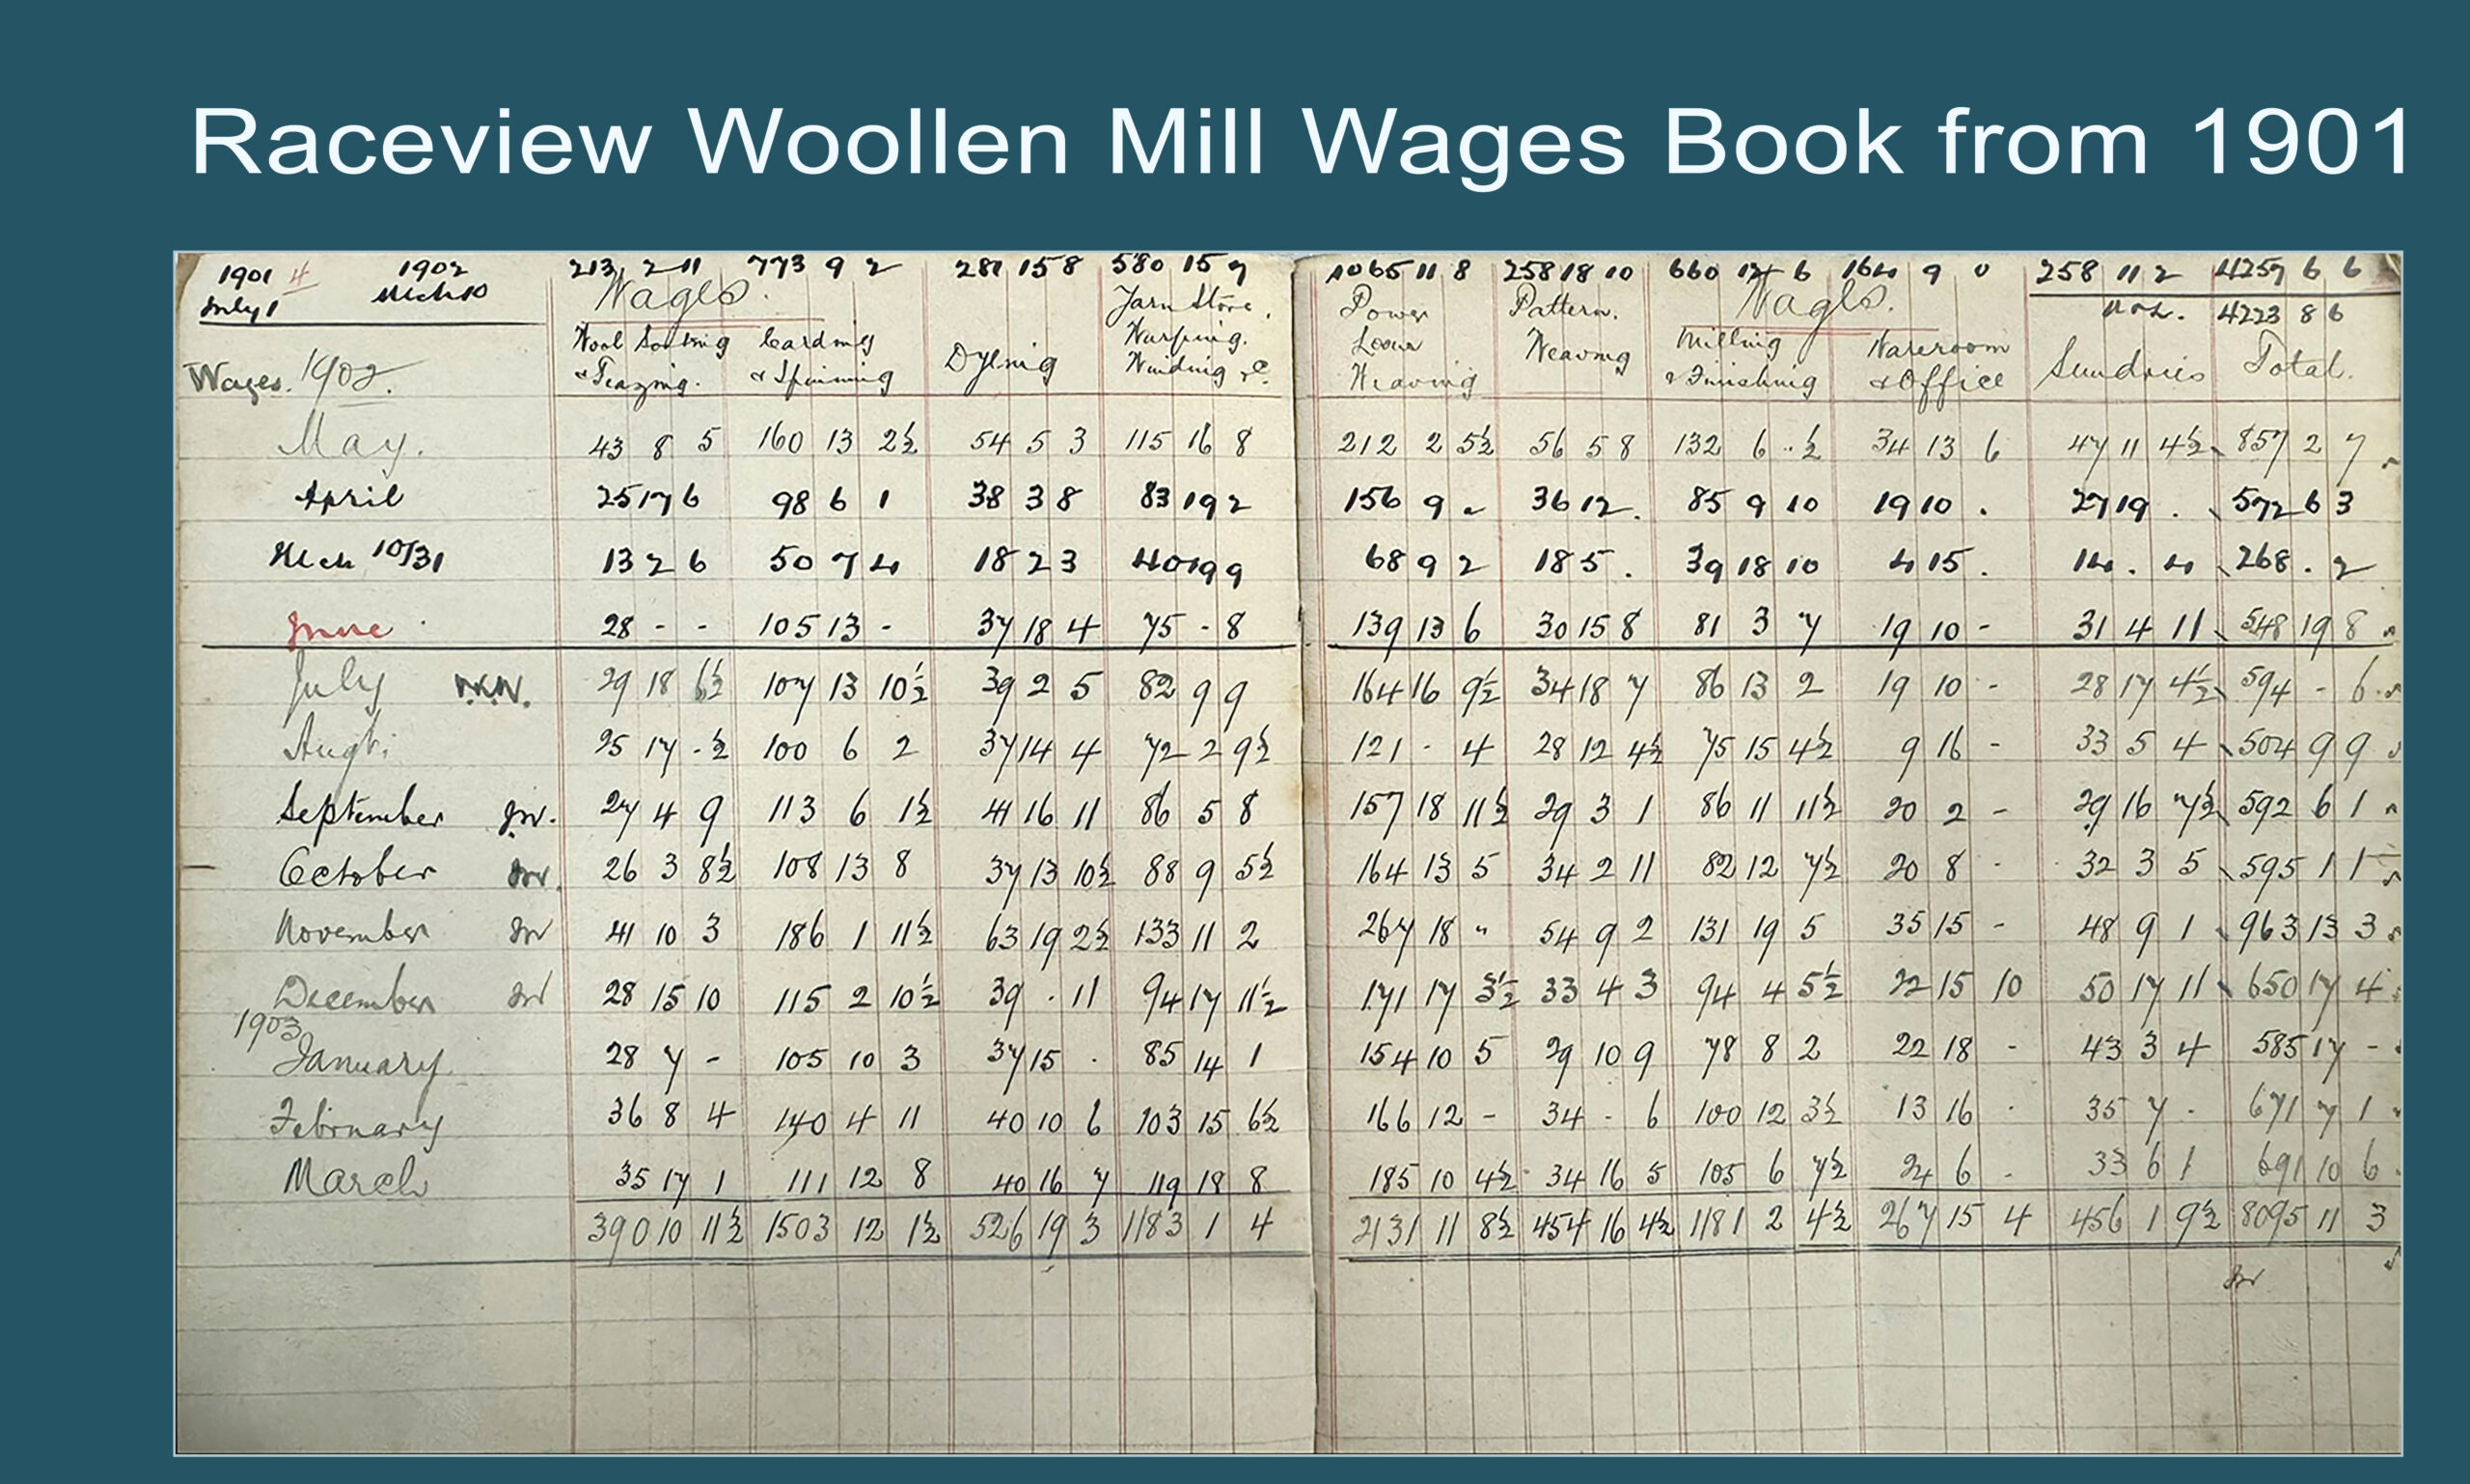 Raceview Woollen Mill Wages Book from 1901
1901 4 1902 213 2 11 773 9 2 281 15 8 580 15 7 1065 11 8 258 18 10 660 6 164 9 0 258 11 2 4257 6 6
July 1 Mch 10 Wages. Yarn Store, Power Pattern. Wages. 4223 8 6
Wool Sorting Carding Dyeing Warping. Loom Weaving Milling Wareroom Sundries Total.
Wages. 1902. & Teazing. & Spinning Winding &c. Weaving & Finishing & Office
May. 43 8 5 160 13 2½ 54 5 3 115 16 8 212 2 5½ 56 5 8 132 6 - ½ 34 13 6 47 11 4½ 857 2 7
April 25 17 6 98 6 1 38 3 8 83 19 2 156 9 - 36 12 . 85 9 10 19 10 . 27 19 . 572 6 3
Mch 10/31 13 2 6 50 7 4 18 2 3 40 19 9 68 9 2 18 5 . 39 18 10 4 15 . 14 . 4 268 . 2
June 28 - - 105 13 - 37 18 4 75 - 8 139 13 6 30 15 8 81 3 7 19 10 - 31 4 11 548 19 8
July 29 18 6½ 107 13 10½ 39 2 5 82 9 9 164 16 9½ 34 18 7 86 13 2 19 10 - 28 17 4½ 594 - 6
Augt. 25 17 - ½ 100 6 2 37 14 4 72 2 9½ 121 - 4 28 12 4½ 75 15 4½ 9 16 - 33 5 4 504 9 9
September 27 4 9 113 6 1½ 41 16 11 86 5 8 157 18 11½ 29 3 1 86 11 11½ 20 2 - 29 16 7½ 592 6 1
October 26 3 8½ 108 13 8 37 13 10½ 88 9 5½ 164 13 5 34 2 11 82 12 7½ 20 8 - 32 3 5 595 1 1
November 41 10 3 186 1 11½ 63 19 2½ 133 11 2 267 18 " 54 9 2 131 19 5 35 15 - 48 9 1 963 13 3
December 28 15 10 115 2 10½ 39 . 11 94 17 11½ 171 17 3½ 33 4 3 94 4 5½ 22 15 10 50 17 11 650 17 4
1903
January 28 7 - 105 10 3 37 15 . 85 14 1 154 10 5 29 10 9 78 8 2 22 18 - 43 3 4 585 17 -
February 36 8 4 140 4 11 40 10 6 103 15 6½ 166 12 - 34 - 6 100 12 3½ 13 16 . 35 7 - 671 7 1
March 35 17 1 111 12 8 40 16 7 119 18 8 185 10 4½ 34 16 5 105 6 7½ 24 6 - 33 6 1 691 10 6
390 10 11½ 1503 12 1½ 526 19 3 1183 1 4 2131 11 8½ 454 16 4½ 1181 2 4½ 267 15 4 456 1 9½ 8095 11 3